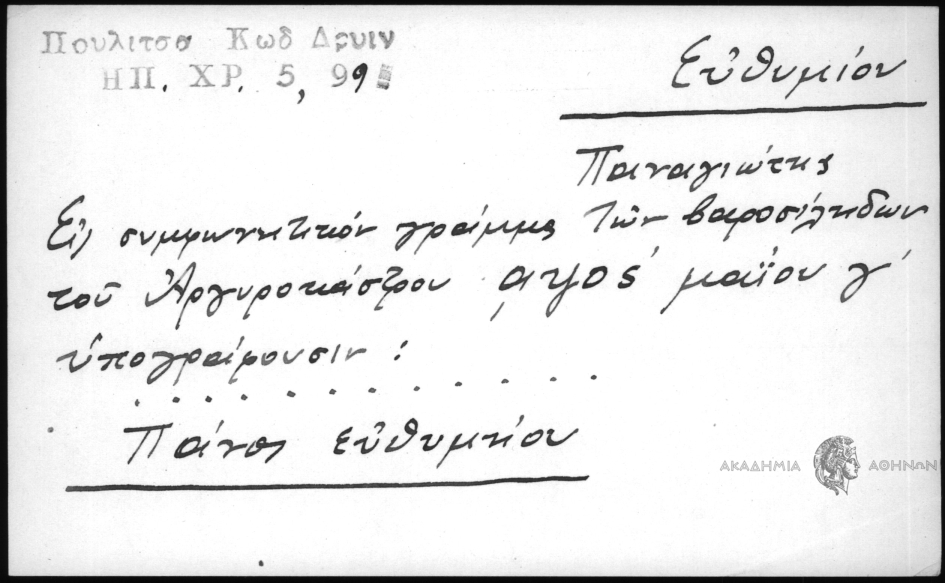 Πουλιτσα Κωδ Δρυιν
ΗΠ. ΧΡ. 5, 99
Εὐθυμίου
Παναγιώτης
Εἰς συμφωνητικόν γράμμα τῶν βαροσίληδων
τοῦ Ἀργυροκάστρου ͵αψος΄ μαΐου γ΄
ὑπογράφουσιν :
. . . . . . . . . . . . .
Πάνος εὐθυμήου
ΑΚΑΔΗΜΙΑ ΑΘΗΝΩΝ